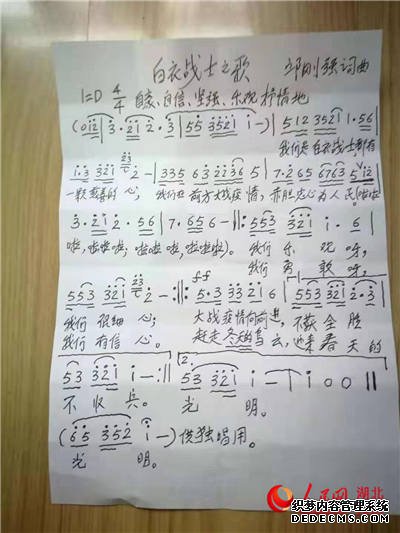 白衣战士之歌 邱刚强词曲
1=D 4/4 自豪、自信、坚强、乐观 抒情地
(012|3·21 2·3|55 3521 i-)|512 3521 1·56|
我们是白衣战士都有
1·3 321 2-|335 63 2236 5|7·265 6763 5 12
一颗慈善的心, 我们在前方大战疫情, 赤胆忠心为人民(啦啦
3·21 2·56|7·656-:||:553 321 i·6|
啦,啦啦啦,啦啦啦 啦,啦啦啦)。我们 乐 观 呀,
我们 勇 敢 呀,
553 321 2-:||:5·3 3321 2 6|553 321 2·3|
我们 很细 心; 大战疫情向前进, 不获全胜
我们 有信 心。 赶走冬天的乌云, 迎来春天的
53 321 i-:||53 321 i--|i00||
2.
不收兵。 光 明。
(65 352 i-)供独唱用。
光 明。
ff
人民网 湖北
织梦内容管理系统
DEDECMS.COM